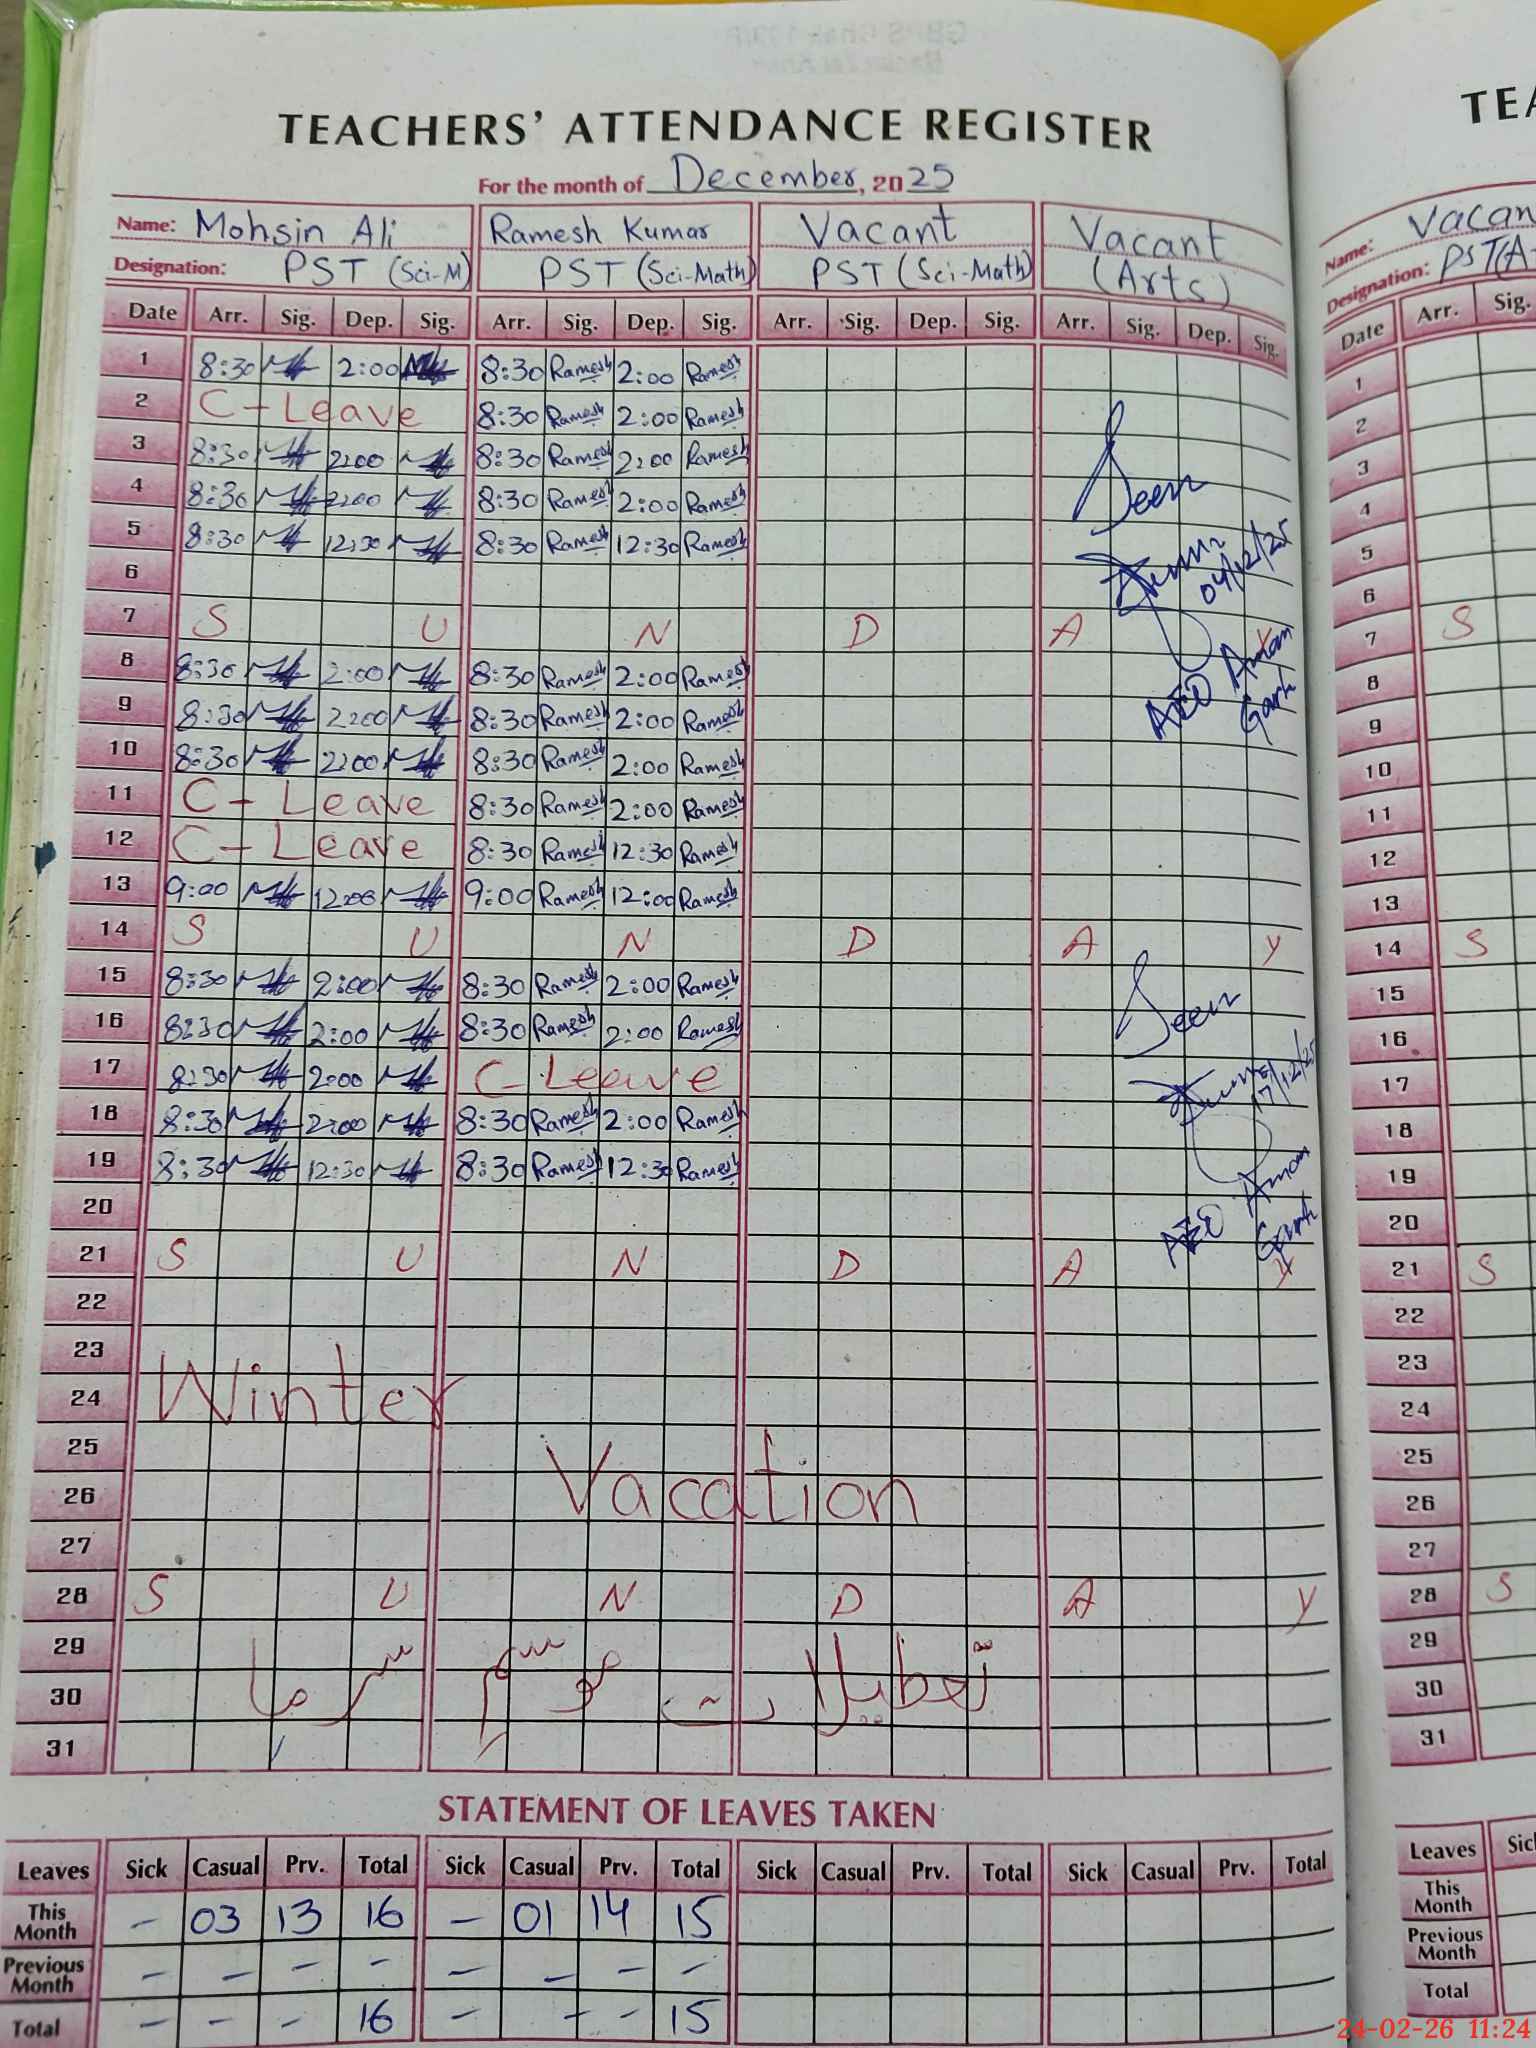 TEACHERS' ATTENDANCE REGISTER
For the month of December, 2025
Name: Mohsin Ali Ramesh Kumar Vacant Vacant
Designation: PST (Sci-M) PST (Sci-Math) PST (Sci-Math) (Arts)
Date Arr. Sig. Dep. Sig. Arr. Sig. Dep. Sig. Arr. Sig. Dep. Sig. Arr. Sig. Dep. Sig.
1 8:30 2:00 8:30 Ramesh 2:00 Ramesh
2 C-Leave 8:30 Ramesh 2:00 Ramesh
3 8:30 2:00 8:30 Ramesh 2:00 Ramesh
4 8:30 2:00 8:30 Ramesh 2:00 Ramesh
5 8:30 12:30 8:30 Ramesh 12:30 Ramesh
6
7 S U N D A Y
8 8:30 2:00 8:30 Ramesh 2:00 Ramesh
9 8:30 2:00 8:30 Ramesh 2:00 Ramesh
10 8:30 2:00 8:30 Ramesh 2:00 Ramesh
11 C-Leave 8:30 Ramesh 2:00 Ramesh
12 C-Leave 8:30 Ramesh 12:30 Ramesh
13 9:00 12:00 9:00 Ramesh 12:00 Ramesh
14 S U N D A Y
15 8:30 2:00 8:30 Ramesh 2:00 Ramesh
16 8:30 2:00 8:30 Ramesh 2:00 Ramesh
17 8:30 2:00 C-Leave
18 8:30 2:00 8:30 Ramesh 2:00 Ramesh
19 8:30 12:30 8:30 Ramesh 12:30 Ramesh
20
21 S U N D A Y
22
23
24 Winter
25
26 Vacation
27
28 S U N D A Y
29
30 تعطیلات موسم سرما
31
Seen
04/12/25
AEO Aman
Garh
Seen
17/12/25
AEO Aman
Garh
STATEMENT OF LEAVES TAKEN
Leaves Sick Casual Prv. Total Sick Casual Prv. Total Sick Casual Prv. Total Sick Casual Prv. Total
This Month - 03 13 16 - 01 14 15
Previous Month - - - - - - - -
Total - - - 16 - - - 15
TEA
Name: Vacan
Designation: PST(A
Date Arr. Sig.
1
2
3
4
5
6
7 S
8
9
10
11
12
13
14 S
15
16
17
18
19
20
21 S
22
23
24
25
26
27
28 S
29
30
31
Leaves Sic
This Month
Previous Month
Total
24-02-26 11:24